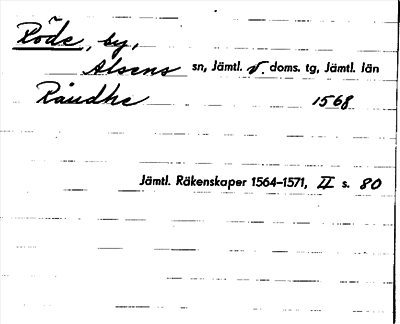 Röde, by,
Alsens sn, Jämtl. v. doms. tg, Jämtl. län
Råudhe 1568
Jämtl. Räkenskaper 1564–1571, II s. 80